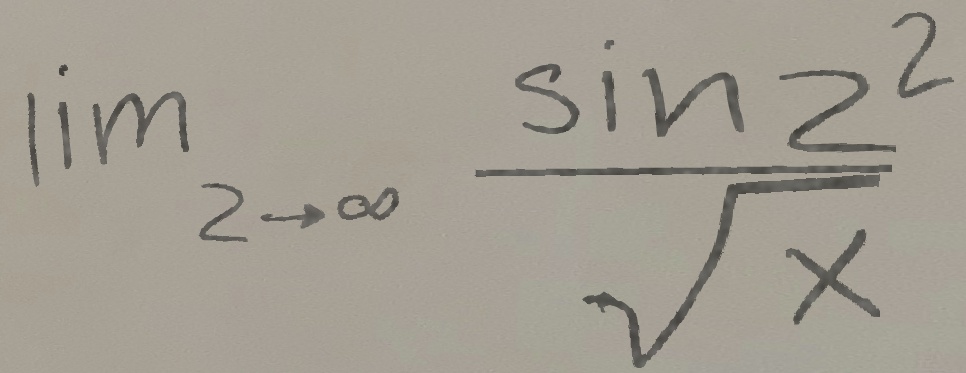 \lim_{z \to \infty} \frac{\sin z^2}{\sqrt{x}}